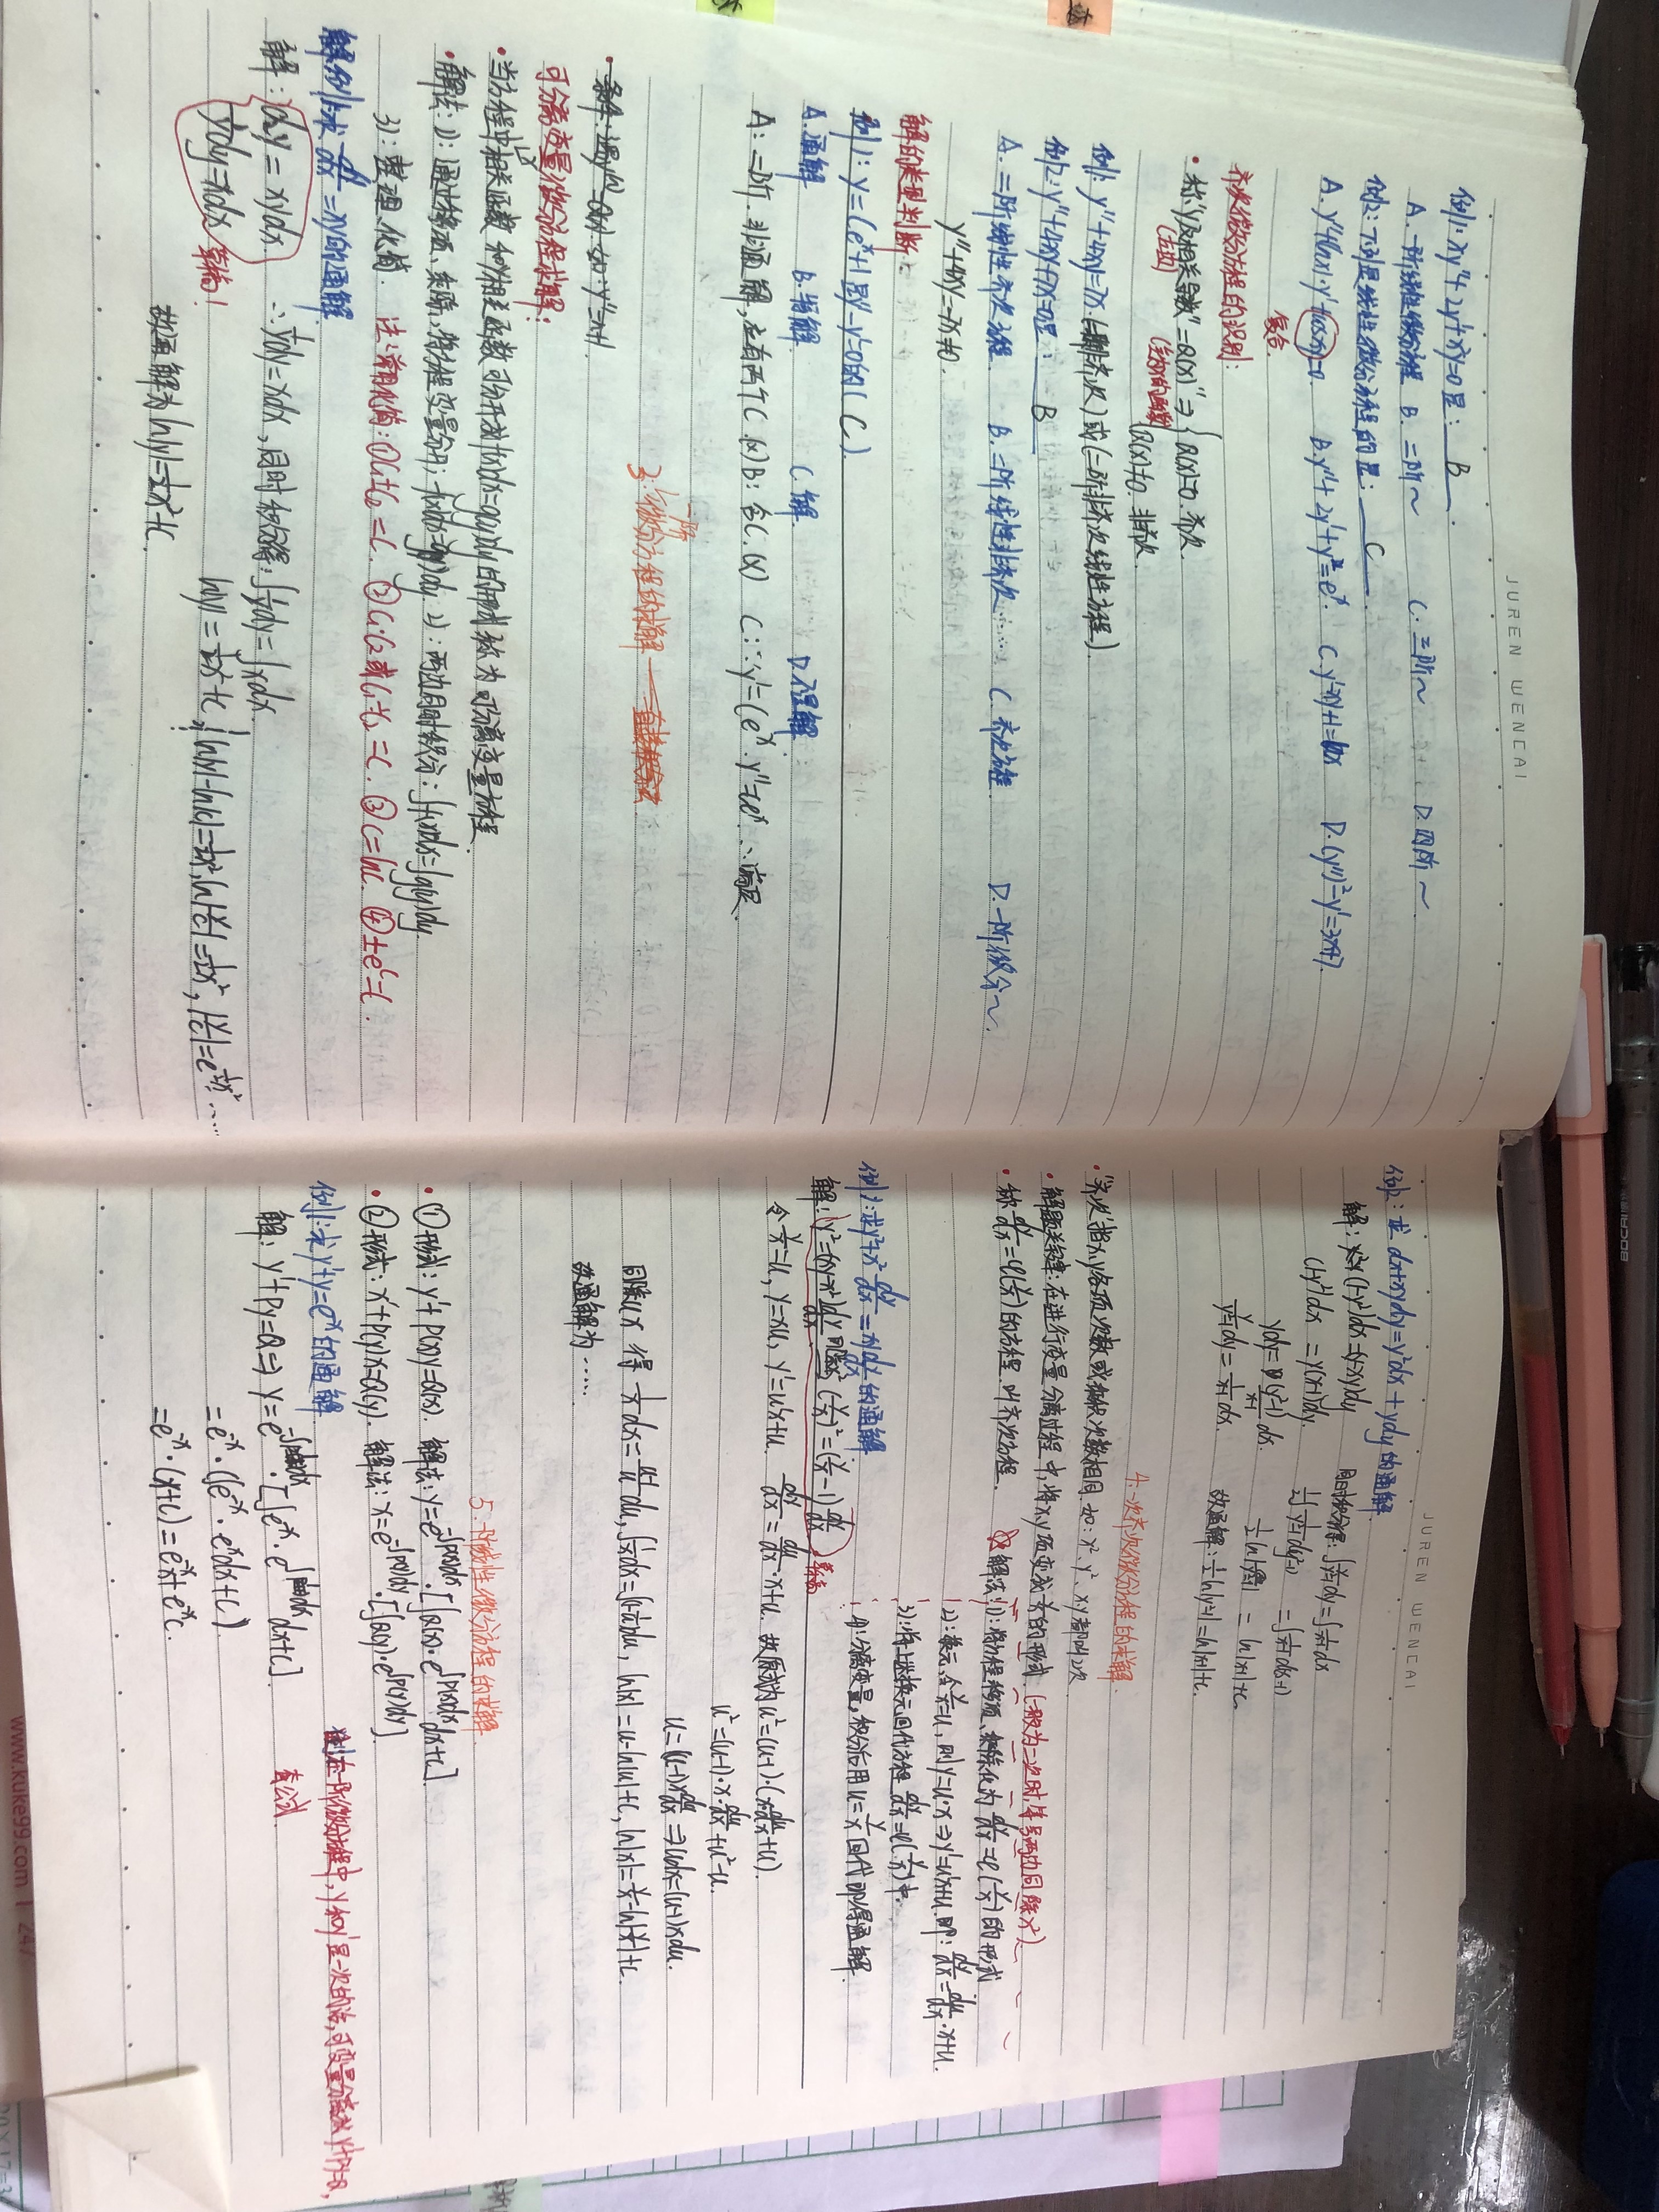 JUREN WENCAI
例1: xy''+2y'+x²y=0是: B.
A. 一阶线性微分方程 B. 二阶~ C. 三阶~ D. 四阶~.
例2: 下列是线性微分方程的是: C.
A. y''+(lnx)·y'+cosxy=0. B. y''+2y'+y²=eˣ. C. y'-xy+1=lnx D. (y'')²-y'=3x+7.
复合.
齐次微分方程的识别:
• 称"y及相关导数"=Q(x)" ⇒ { Q(x)=0. 齐次.
(左边) (全为x的函数)
Q(x)≠0. 非齐次.
例1: y''+4xy=7x. (二阶非齐次) 或 (二阶非齐次线性方程).
例2: y''+4xy+7x=0是: B
A. 二阶线性齐次方程. B. 二阶线性非齐次…… C. 齐次方程. D. 一阶微分~.
y''+4xy=-7x≠0.
解的类型判断:
例1: y=Ceˣ+1是y''-y'=0的( C ).
A. 通解 B. 特解. C. 解. D. 不是解.
A: 二阶. 非通解, 应有两个C.(x) B: 含C.(x) C: ∵y'=Ceˣ. y''=Ceˣ. ∴满足.
一阶
3. 微分方程的求解 —直接积分法
• 条件: 遇y⁽ⁿ⁾=Q(x). 如: y''=x+1.
可分离变量微分方程求解:
x
• 当方程中相关函数和y相关函数可分开成f(x)dx=g(y)dy的形式称为可分离变量方程.
• 解法: 1): 通过移项、乘除, 将方程变量分开; f(x)dx=g(y)dy. 2): 两边同时积分: ∫f(x)dx=∫g(y)dy.
3): 整理、化简. 注: 常用化简: ①C₁±C₂=C. ②C₁·C₂或C₁÷C₂=C. ③C=lnC. ④±eᶜ=C.
例1: 求dy/dx=xy的通解.
解: dy=xydx. ∴1/y dy=xdx, 同时积分得: ∫1/y dy=∫xdx.
1/y dy=xdx 草稿!
ln|y|=½x²+C, ln|y|-ln|C|=½x², ln|y/C|=½x², |y/C|=e^(½x²)……
故通解为ln|y|=½x²+C.
JUREN WENCAI
例2: 求dx+xydy=y²dx+ydy的通解.
解: (1-y²)dx=(y-xy)dy 同时积分得: ∫y/(y²-1)dy=∫1/(x-1)dx
(1-y²)dx=y(x-1)dy. ½∫1/(y²-1)d(y²-1)=∫1/(x-1)d(x-1)
ydy=(y²-1)/(x-1)dx. ½ln|y²-1|=ln|x-1|+C.
y/(y²-1)dy=1/(x-1)dx. 故通解: ½ln|y²-1|=ln|x-1|+C.
4. 一次齐次微分方程的求解.
• "齐次"指x、y各项次数或乘积次数相同. 如: x²、y²、x·y都叫2次
• 解题关键: 在进行变量分离过程中, 将x、y项变成y/x的形式. (一般为二次时, 等号两边同除x²)
• 称dy/dx=φ(y/x)的方程. 叫齐次方程. ☆解法: 1): 将方程移项、乘除化为dy/dx=φ(y/x)的形式
2): 换元, 令y/x=u, 则y=u·x⇒y'=u'x+u. 即: dy/dx=du/dx·x+u.
3): 将上述换元回代方程dy/dx=φ(y/x)中.
4): 分离变量, 积分后用u=y/x回代即得通解.
例1: 求y²+x²dy/dx=xy dy/dx的通解
解: y²=(xy-x²)dy/dx 同除x² (y/x)²=(y/x-1)dy/dx 草稿
令y/x=u, y=xu, y'=u'x+u. dy/dx=du/dx·x+u. 故原式为u²=(u-1)·(x·du/dx+u).
u²=(u-1)·x·du/dx+u²-u.
u=(u-1)x du/dx⇒udx=(u-1)xdu.
同除ux得 1/x dx=(u-1)/u du, ∫1/x dx=∫(1-1/u)du, ln|x|=u-ln|u|+C, ln|x|=y/x-ln|y/x|+C.
故通解为……
5. 一阶线性微分方程的求解
• ①形式: y'+P(x)y=Q(x). 解法: y=e^(-∫P(x)dx)·[∫Q(x)·e^(∫P(x)dx)dx+C].
• ②形式: x'+P(y)x=Q(y). 解法: x=e^(-∫P(y)dy)·[∫Q(y)·e^(∫P(y)dy)].
例1: 求y'+y=e⁻ˣ的通解 注: 在一阶微分方程中, y和y'是一次的话, 可变量分离成y'+Py=Q,
套公式.
解: y'+Py=Q⇒y=e^(-∫dx)·[∫e⁻ˣ·e^(∫dx)dx+C].
=e⁻ˣ·(∫e⁻ˣ·eˣdx+C).
=e⁻ˣ·(x+C)=e⁻ˣx+e⁻ˣC.
www.kuke99.com | 247
BOCAI